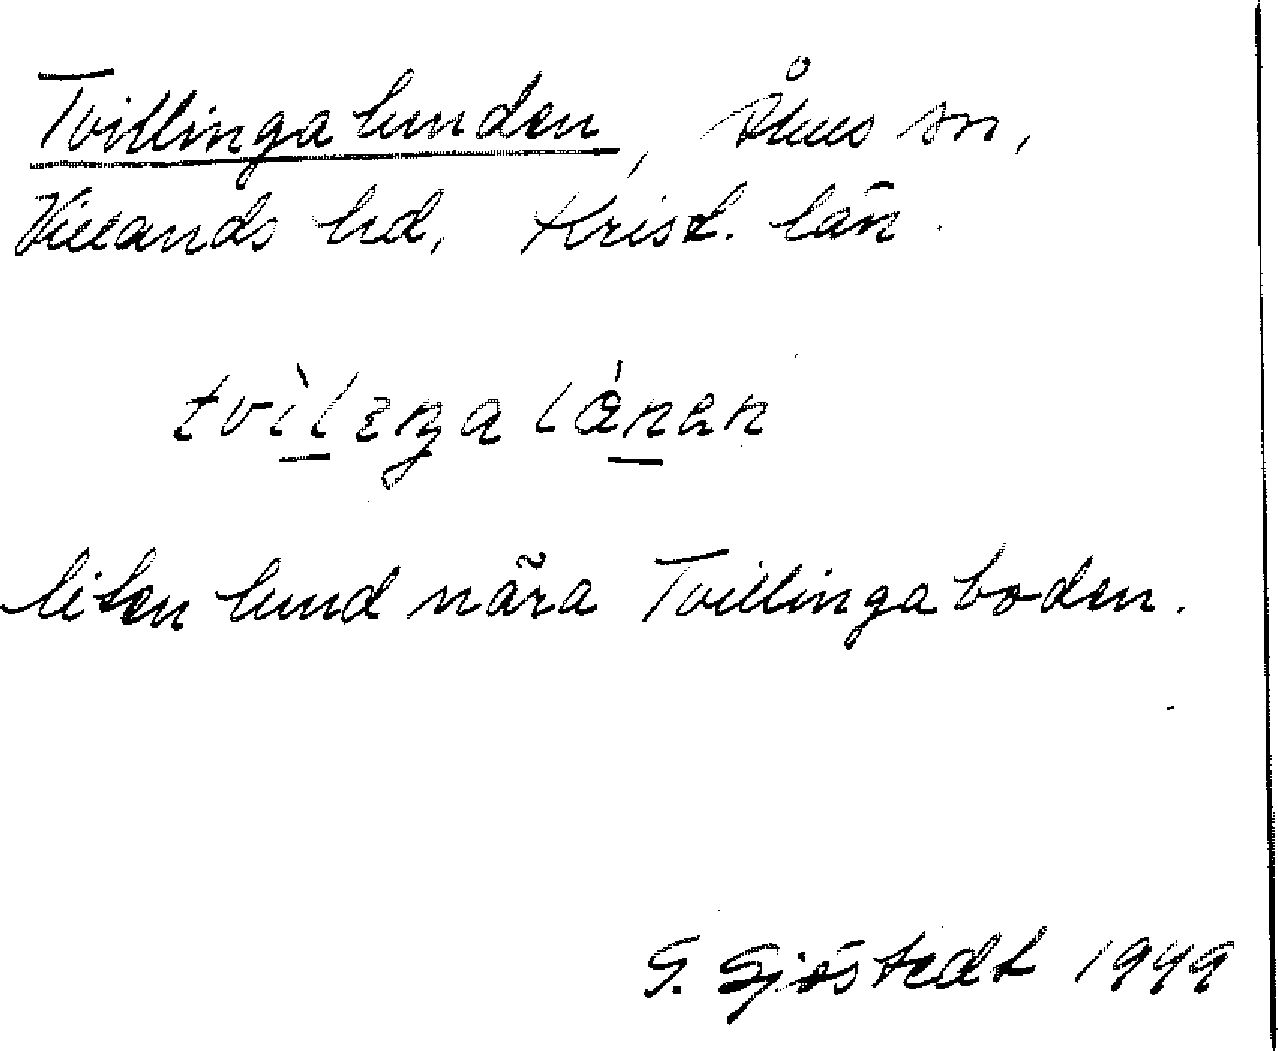 Tvillingalunden, Åhus sn,
Villands hd, Krist. län.
tvìlɛŋa lánən
liten lund nära Tvillingaboden.
G. Sjöstedt 1949